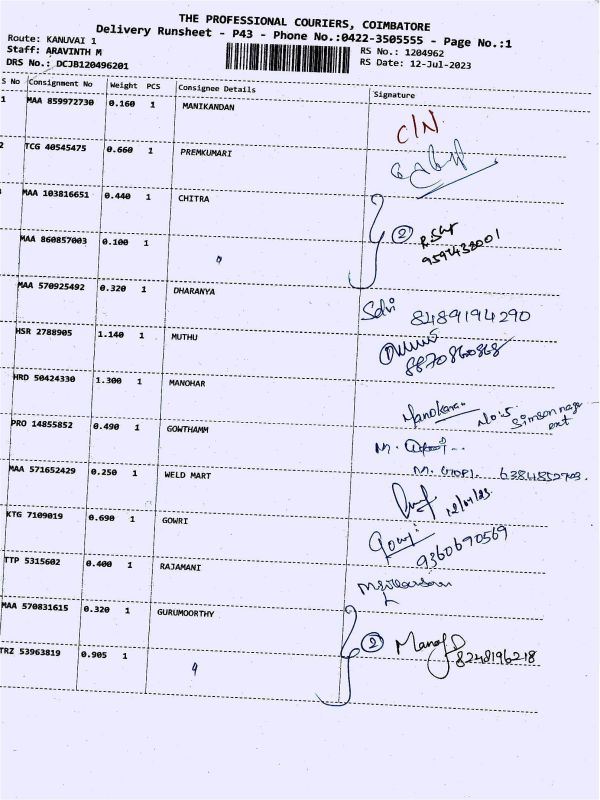 THE PROFESSIONAL COURIERS, COIMBATORE
Delivery Runsheet - P43 - Phone No.:0422-3505555 - Page No.:1
Route: KANUVAI 1
Staff: ARAVINTH M RS No.: 1204962
DRS No.: DCJB120496201 RS Date: 12-Jul-2023
S No Consignment No Weight PCS Consignee Details Signature
1 MAA 859972730 0.160 1 MANIKANDAN
C/N
2 TCG 40545475 0.660 1 PREMKUMARI
MAA 103816651 0.440 1 CHITRA
2
MAA 860857003 0.100 1 "
MAA 570925492 0.320 1 DHARANYA
Selvi 8489194290
HSR 2788905 1.140 1 MUTHU
8870860868
HRD 50424330 1.300 1 MANOHAR
Manoharan No:5 Simson nagar ext
PRO 14855852 0.490 1 GOWTHAMM
M. GOPI. 6384852703.
MAA 571652429 0.250 1 WELD MART
KTG 7109019 0.690 1 GOWRI
Gowri
9360690569
TTP 5315602 0.400 1 RAJAMANI
MAA 570831615 0.320 1 GURUMOORTHY
2 Manoj D
8248196218
TRZ 53963819 0.905 1 "